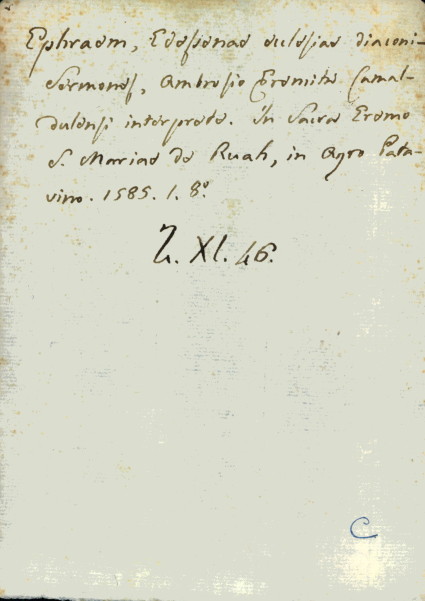 Ephraem, Edessenae eclesiae diaconi
Sermones, Ambrosio Eremita Camal-
dulensi interprete. In Sacra Eremo
S. Mariae de Ruah, in Agro Pata-
vino. 1585. 1. 8°
Z. XI. 46.
C